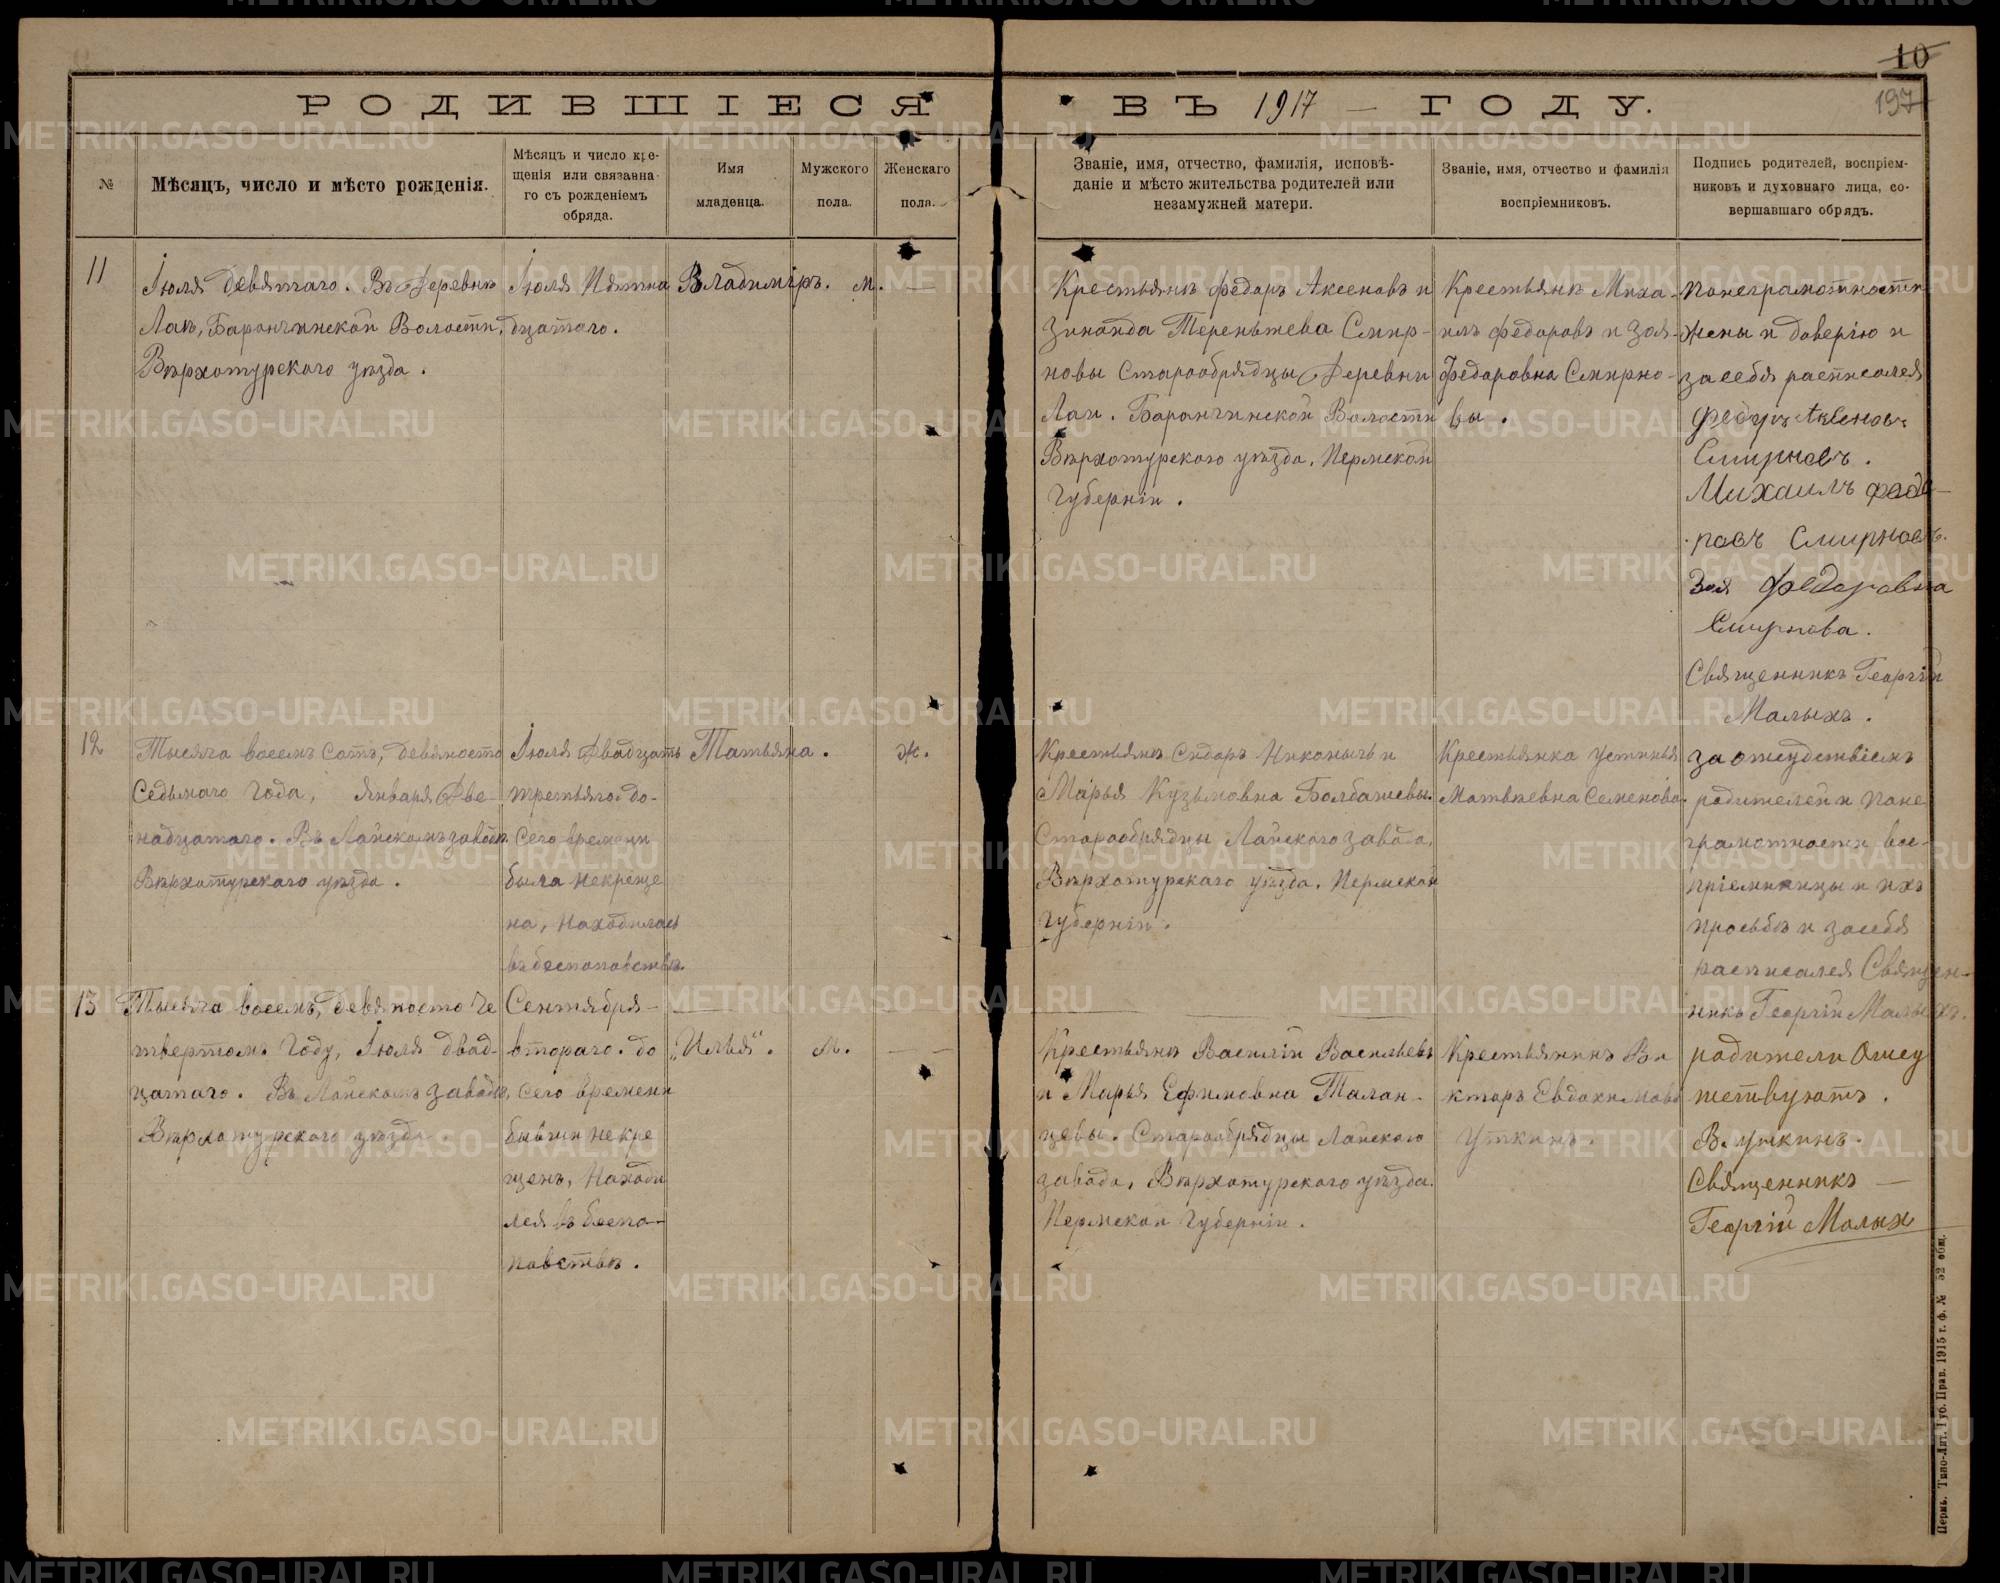 10
197
РОДИВШІЕСЯ ВЪ 1917 — ГОДУ.
№
Мѣсяцъ, число и мѣсто рожденія.
Мѣсяцъ и число кре-
щенія или связанна-
го съ рожденіемъ
обряда.
Имя
младенца.
Мужского
пола.
Женскаго
пола.
Званіе, имя, отчество, фамилія, исповѣ-
даніе и мѣсто жительства родителей или
незамужней матери.
Званіе, имя, отчество и фамилія
воспріемниковъ.
Подпись родителей, воспріем-
никовъ и духовнаго лица, со-
вершавшаго обрядъ.
11
Іюля девятаго. Въ Деревнѣ
Лаѣ, Баранчинской Волости,
Вѣрхотурскаго уѣзда.
Іюля Пятна
дцатаго.
Владиміръ.
м.
Крестьянѣ Федоръ Аксеновъ и
Зинаида Терентьева Смир-
новы Старообрядцы Деревни
Лаи. Баранчинской Волости
Вѣрхотурскаго уѣзда. Пермской
Губерніи.
Крестьянѣ Миха-
илъ Федоровъ и Зоя-
Федоровна Смирно-
вы.
Понеграмотности
жены и доверію и
засебя расписался
Федоръ Аксеновъ
Смирновъ.
Михаилъ Федо-
ровъ Смирновъ.
Зоя Федоровна
Смирнова.
Священникъ Георгій
Малыхъ.
12
Тысяча восемъ сотъ, девяносто
Седьмаго Года, Января Две-
надцатаго. Въ Лайскомъ заводѣ
Вѣрхотурскаго уѣзда.
Іюля Двадцать
третьяго. до-
Сего времени
была некреще
на, Находилась
въ беспоповствѣ.
Татьяна.
ж.
Крестьянѣ Сидоръ Никонычъ и
Марья Кузьмовна Болбашевы.
Старообрядцы Лайскаго завода,
Вѣрхотурскаго уѣзда. Пермской
Губерніи.
Крестьянка Устинья
Матвѣевна Семенова.
за отсудствіемъ
родителей и поне
грамотности вос-
пріемницы и ихъ
просьбѣ и засебя
расписался Священ-
никъ Георгій Малыхъ.
13
Тысяча восемъ, девяносто Че
твертомъ Году, Іюля двад-
цатаго. Въ Лайскомъ заводѣ,
Вѣрхотурскаго уѣзда.
Сентября-
втораго. до
Сего времени
бывши некре
щенъ, Находи
лся въ беспо-
повствѣ.
„Илья“.
м.
Крестьянѣ Василій Васильевъ
и Марья Ефимовна Талан-
цевы. Старообрядцы Лайскаго
завода, Вѣрхотурскаго уѣзда.
Пермской Губерніи.
Крестьянинъ Ви
кторъ Евдокимовъ
Уткинъ.
родители Отсу
тствуютъ.
В. Уткинъ.
Священникъ —
Георгій Малых
Пермь. Типо-Лит. Губ. Прав. 1915 г. ф. № 52 общ.
METRIKI.GASO-URAL.RU